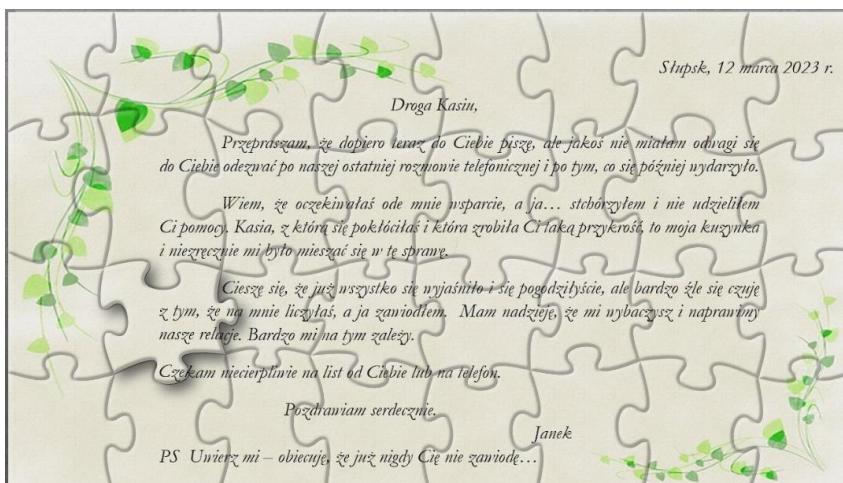 Słupsk, 12 marca 2023 r.
Droga Kasiu,
Przepraszam, że dopiero teraz do Ciebie piszę, ale jakoś nie miałam odwagi się
do Ciebie odezwać po naszej ostatniej rozmowie telefonicznej i po tym, co się później wydarzyło.
Wiem, że oczekiwałaś ode mnie wsparcie, a ja… stchórzyłem i nie udzieliłem
Ci pomocy. Kasia, z którą się pokłóciłaś i która zrobiła Ci taką przykrość, to moja kuzynka
i niezręcznie mi było mieszać się w tę sprawę.
Cieszę się, że już wszystko się wyjaśniło i się pogodziłyście, ale bardzo źle się czuję
z tym, że na mnie liczyłaś, a ja zawiodłem. Mam nadzieję, że mi wybaczysz i naprawimy
nasze relacje. Bardzo mi na tym zależy.
Czekam niecierpliwie na list od Ciebie lub na telefon.
Pozdrawiam serdecznie.
Janek
PS Uwierz mi – obiecuję, że już nigdy Cię nie zawiodę…